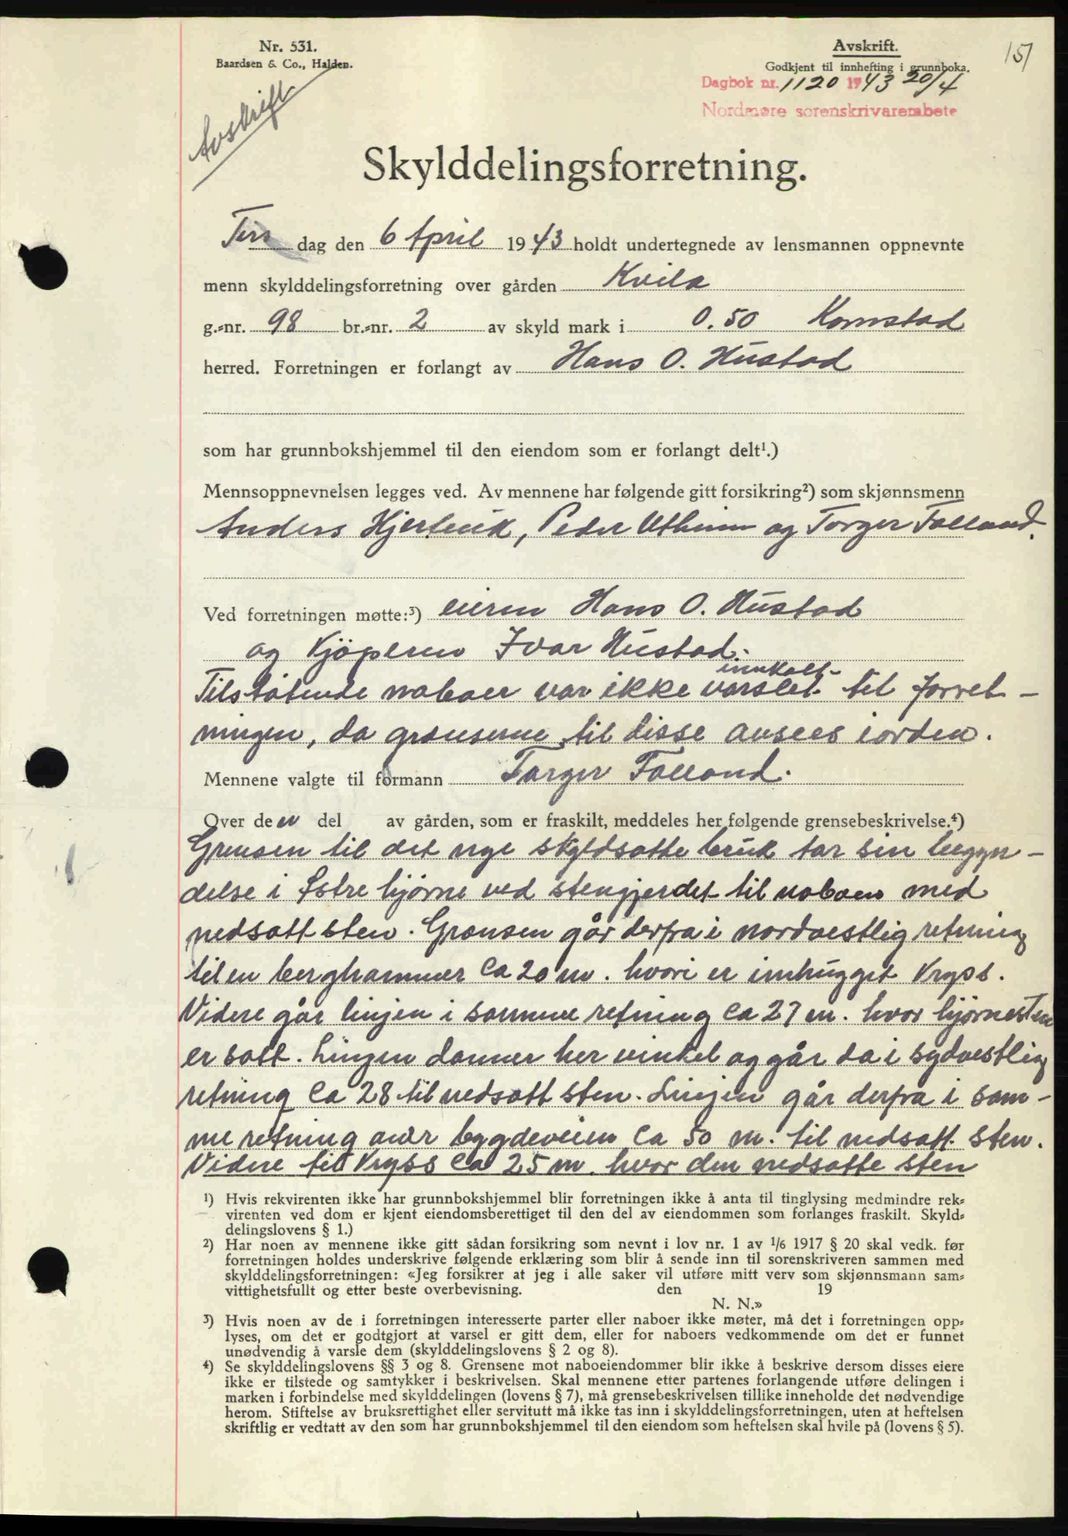 Nr. 531.
Baardsen & Co., Halden.
Avskrift.
Godkjent til innhefting i grunnboka.
151
Dagbok nr. 1120 1943 20/4
Nordmøre sorenskrivarembete
Avskrift
Skylddelingsforretning.
Tirsdag den 6 April 1943 holdt undertegnede av lensmannen oppnevnte
menn skylddelingsforretning over gården Kvila
g.-nr. 98 br.-nr. 2 av skyld mark i 0.50 Kornstad
herred. Forretningen er forlangt av Hans O. Hustad
som har grunnbokshjemmel til den eiendom som er forlangt delt¹.)
Mennsoppnevnelsen legges ved. Av mennene har følgende gitt forsikring²) som skjønnsmenn
Anders Hjertvik, Peder Utheim og Torger Folland.
Ved forretningen møtte:³) eieren Hans O. Hustad
og Kjöperen Ivar Hustad.
innkalt
Tilstøtende naboer var ikke varslet til forret-
ningen, da grensene til disse ansees iorden.
Mennene valgte til formann Torger Folland.
Over den del av gården, som er fraskilt, meddeles her følgende grensebeskrivelse.⁴)
Grensen til det nye skyldsatte bruk tar sin begyn-
delse i Østre hjørne ved stengjerdet til naboen med
nedsatt sten. Grensen går derfra i nordvestlig retning
til en berghammer ca 20 m. hvori er innhugget Kryss.
Videre går linjen i samme retning ca 27 m. hvor hjørnesten
er satt. Linjen danner her vinkel og går da i sydvestlig
retning ca 28 til nedsatt sten. Linjen går derfra i sam-
me retning over bygdeveien ca 50 m. til nedsatt sten.
Videre til Kryss ca 25 m. hvor den nedsatte sten
¹) Hvis rekvirenten ikke har grunnbokshjemmel blir forretningen ikke å anta til tinglysing medmindre rek-
virenten ved dom er kjent eiendomsberettiget til den del av eiendommen som forlanges fraskilt. Skyld-
delingslovens § 1.)
²) Har noen av mennene ikke gitt sådan forsikring som nevnt i lov nr. 1 av 1/6 1917 § 20 skal vedk. før
forretningen holdes underskrive følgende erklæring som blir å sende inn til sorenskriveren sammen med
skylddelingsforretningen: «Jeg forsikrer at jeg i alle saker vil utføre mitt verv som skjønnsmann sam-
vittighetsfullt og etter beste overbevisning. den 19
N. N.»
³) Hvis noen av de i forretningen interesserte parter eller naboer ikke møter, må det i forretningen opp-
lyses, om det er godtgjort at varsel er gitt dem, eller for naboers vedkommende om det er funnet
unødvendig å varsle dem (skylddelingslovens § 2 og 8).
⁴) Se skylddelingslovens §§ 3 og 8. Grensene mot naboeiendommer blir ikke å beskrive dersom disses eiere
ikke er tilstede og samtykker i beskrivelsen. Skal mennene etter partenes forlangende utføre delingen i
marken i forbindelse med skylddelingen (lovens § 7), må grensebeskrivelsen tillike inneholde det nødvendige
herom. Stiftelse av bruksrettighet eller servitutt må ikke tas inn i skylddelingsforretningen, uten at heftelsen
skriftlig er vedtatt av den som har grunnbokshjemmel til den eiendom som heftelsen skal hvile på (lovens § 5).